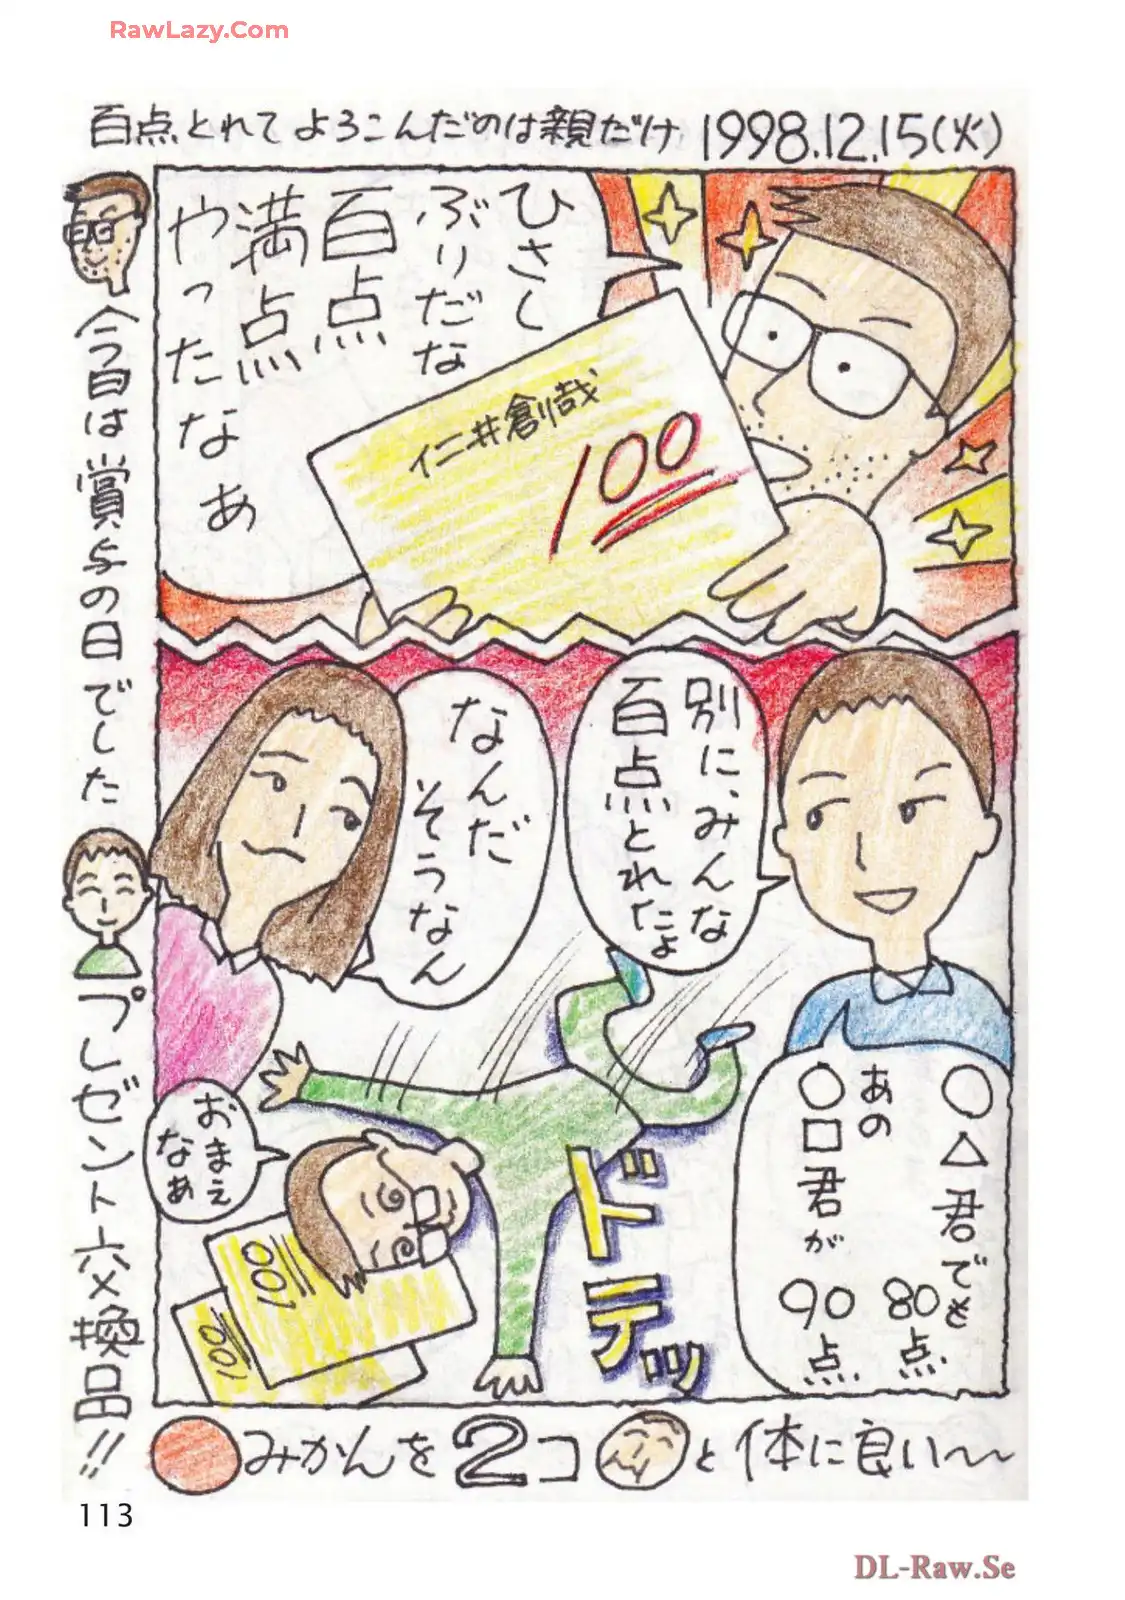 RawLazy.Com
百点とれてよろこんだのは親だけ 1998.12.15(火)
ひさし
ぶりだな
百点
満点
やったな
なぁ
仁井創哉
100
別に、みんな
百点とれたよ
なんだ
そうなん
○△君でも
80点
あの
○□君が
90点
おまえ
なあ
100
100
ドテッ
今日は賞与の日でした
プレゼント交換品!!
みかんを2コ
と体に良い〜〜
113
DL-Raw.Se